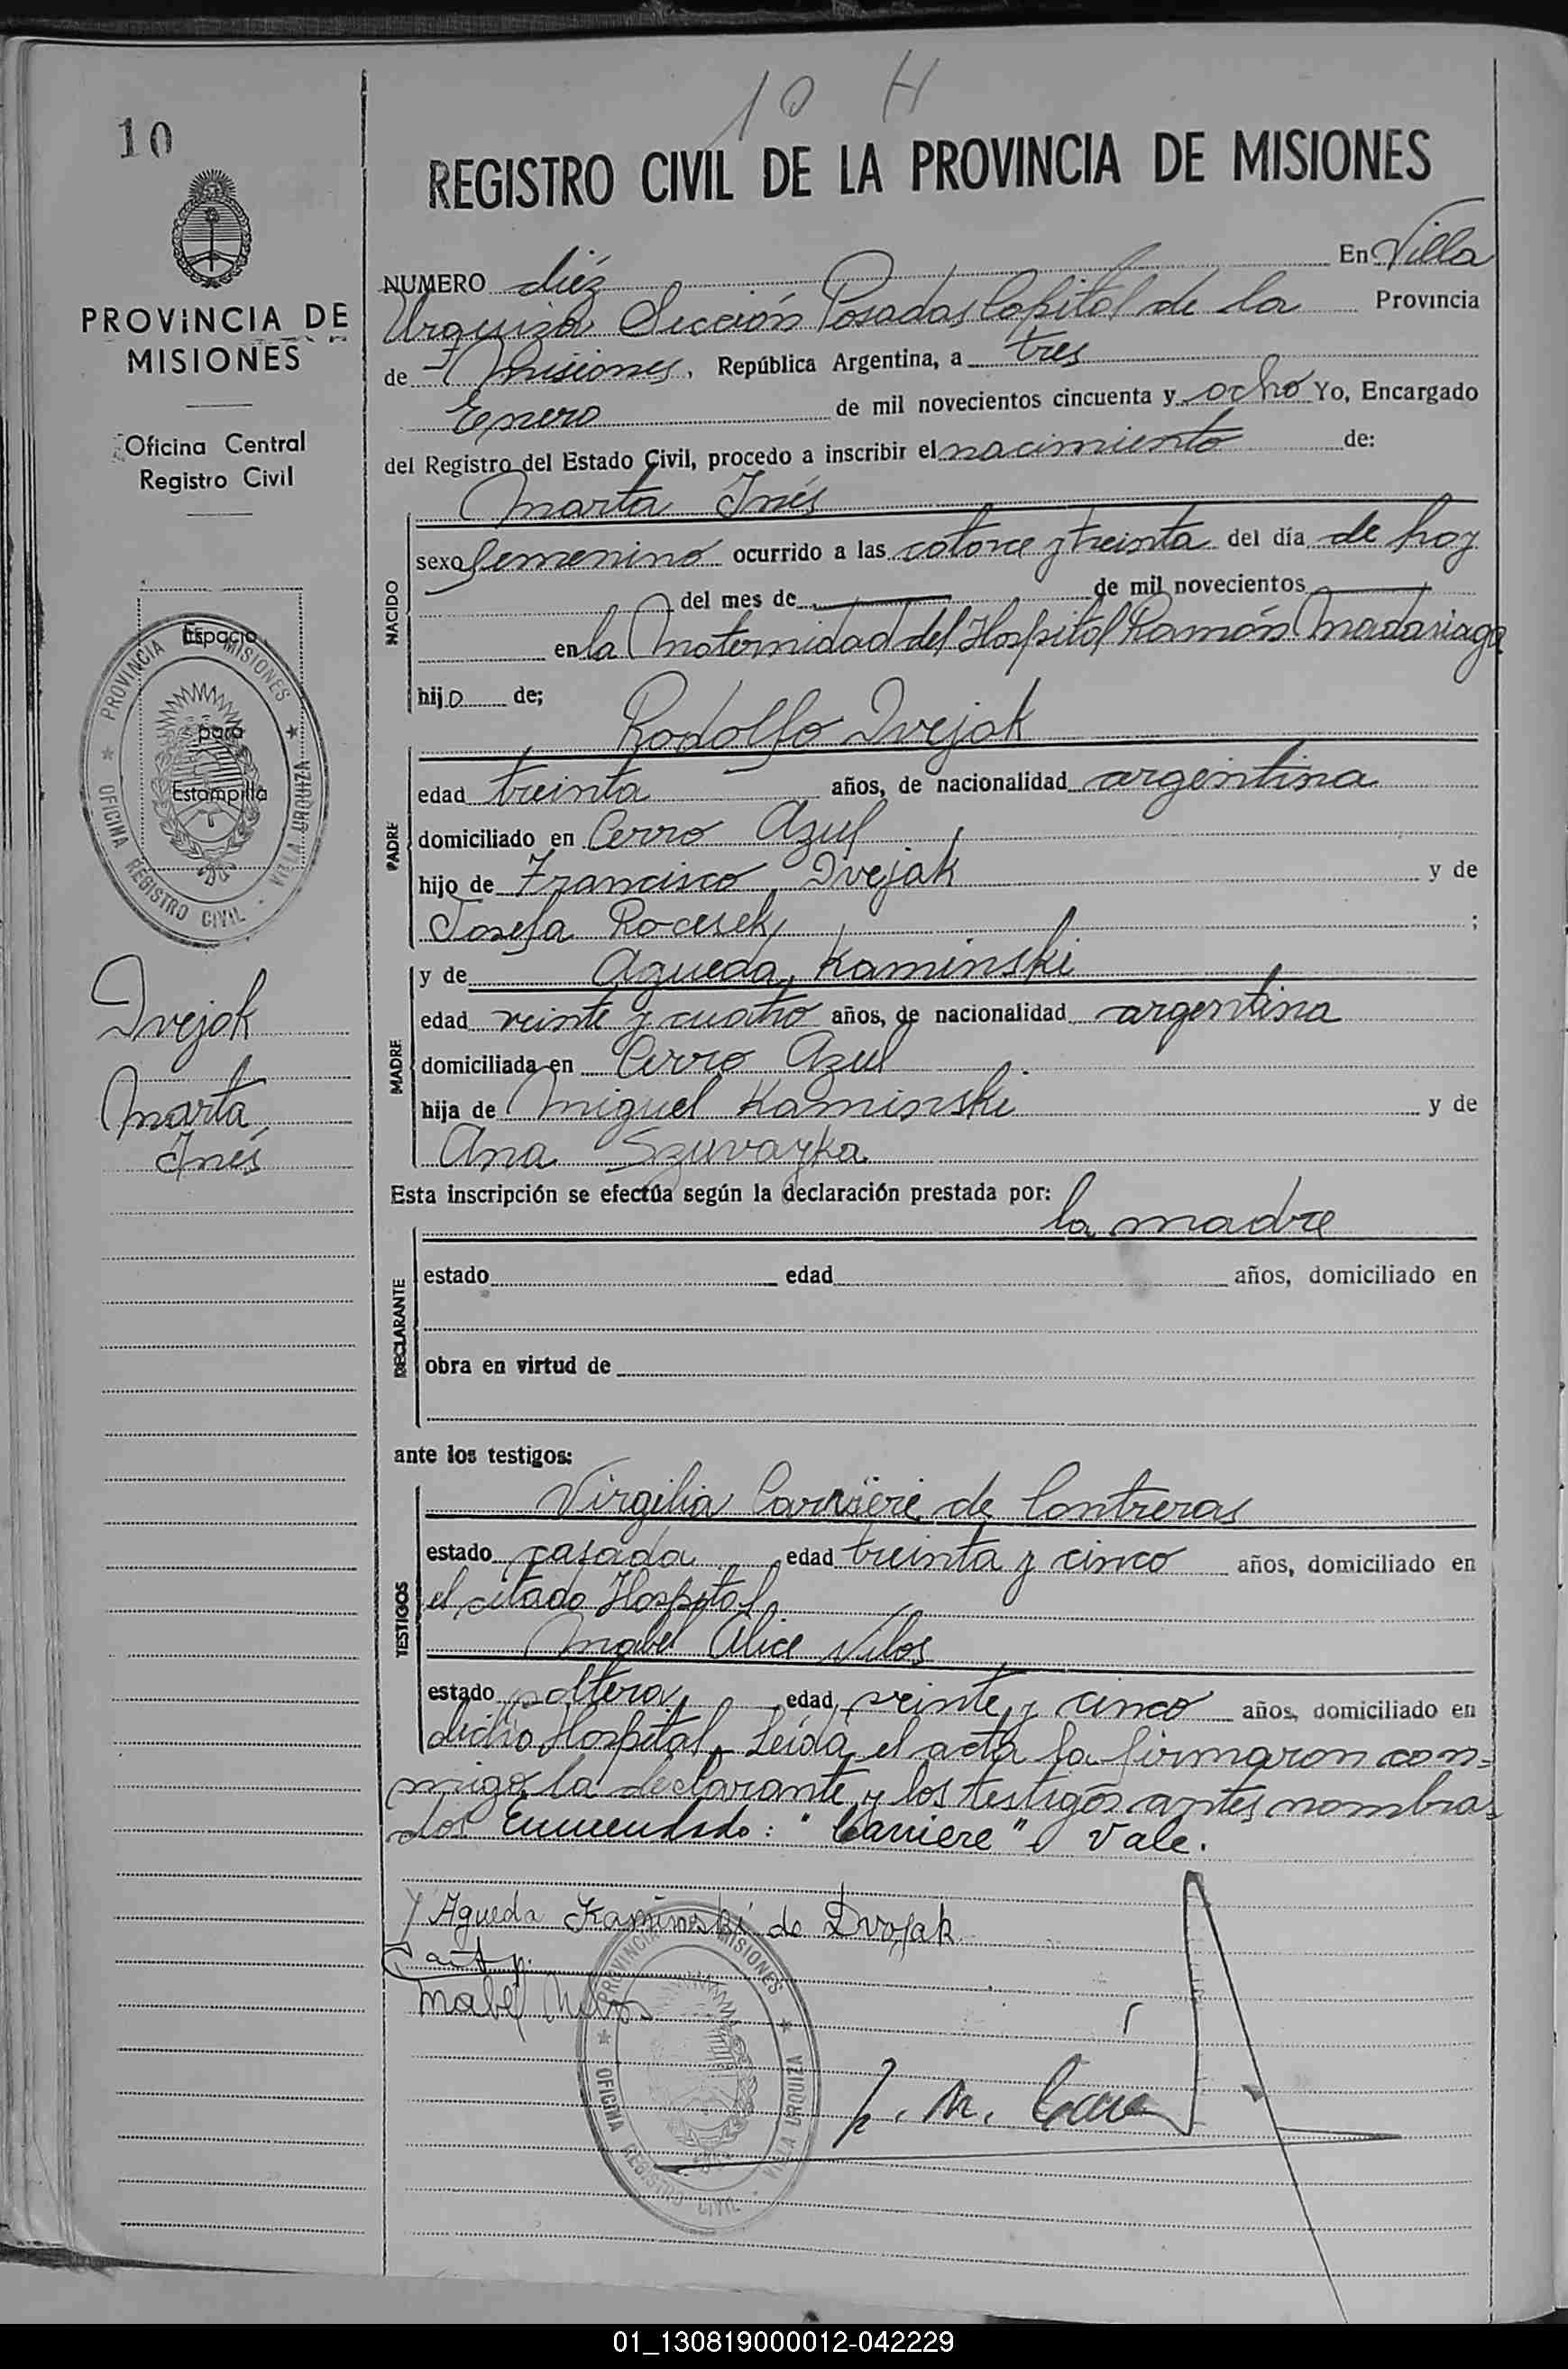 10 H
10
REGISTRO CIVIL DE LA PROVINCIA DE MISIONES
PROVINCIA DE
MISIONES
Oficina Central
Registro Civil
Espacio
para
Estampilla
PROVINCIA DE MISIONES
OFICINA REGISTRO CIVIL - VILLA URQUIZA
Dvejak
Marta
Inés
NUMERO diéz En Villa
Urquiza Sección Posadas Capital de la Provincia
de Misiones, República Argentina, a tres
Enero de mil novecientos cincuenta y ocho Yo, Encargado
del Registro del Estado Civil, procedo a inscribir el nacimiento de:
Marta Inés
NACIDO
sexo femenino ocurrido a las catorce y treinta del día de hoy
del mes de de mil novecientos
en la Maternidad del Hospital Ramón Madariaga
hijo de;
Rodolfo Dvejak
PADRE
edad treinta años, de nacionalidad argentina
domiciliado en Cerro Azul
hijo de Francisco Dvejak y de
Josefa ;
y de Agueda Kaminski
MADRE
edad veinte y cuatro años, de nacionalidad argentina
domiciliada en Cerro Azul
hija de Miguel Kaminski y de
Ana
Esta inscripción se efectúa según la declaración prestada por:
la madre
DECLARANTE
estado edad años, domiciliado en
obra en virtud de
ante los testigos:
Virgilia Carriere de Contreras
TESTIGOS
estado casada edad treinta y cinco años, domiciliado en
el citado Hospital
Mabel Alice Nilos
estado soltera edad veinte y cinco años, domiciliado en
dicho Hospital. Leída el acta la firmaron con=
migo la declarante y los testigos antes nombra=
dos Enmendado: "Carriere" Vale.
Agueda Kaminski de Dvojak
Mabel
PROVINCIA DE MISIONES
OFICINA REGISTRO CIVIL - VILLA URQUIZA
01_130819000012-042229